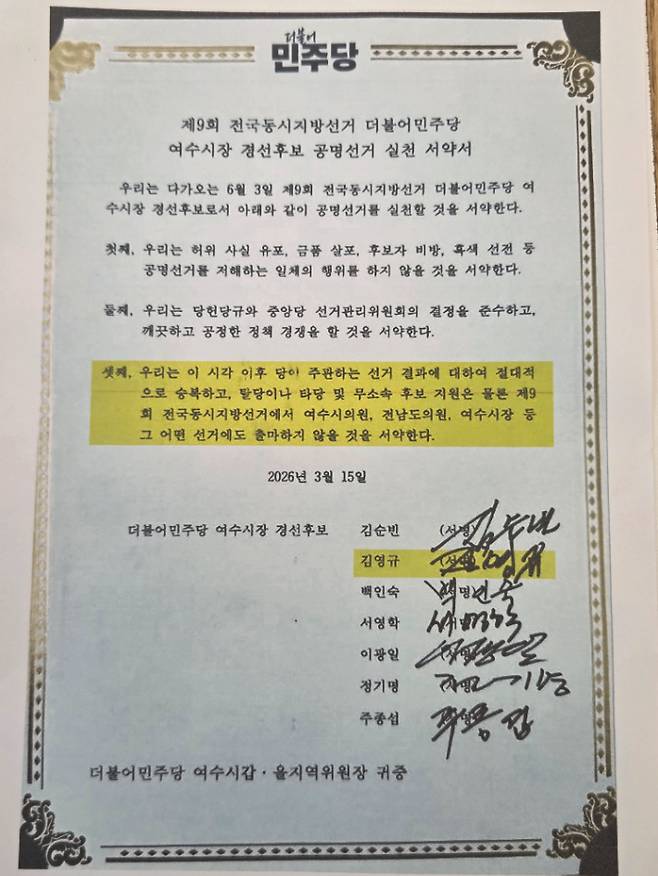 더불어
민주당
제9회 전국동시지방선거 더불어민주당
여수시장 경선후보 공명선거 실천 서약서
우리는 다가오는 6월 3일 제9회 전국동시지방선거 더불어민주당 여
수시장 경선후보로서 아래와 같이 공명선거를 실천할 것을 서약한다.
첫째, 우리는 허위 사실 유포, 금품 살포, 후보자 비방, 흑색 선전 등
공명선거를 저해하는 일체의 행위를 하지 않을 것을 서약한다.
둘째, 우리는 당헌당규와 중앙당 선거관리위원회의 결정을 준수하고,
깨끗하고 공정한 정책 경쟁을 할 것을 서약한다.
셋째, 우리는 이 시각 이후 당이 주관하는 선거 결과에 대하여 절대적
으로 승복하고, 탈당이나 타당 및 무소속 후보 지원은 물론 제9
회 전국동시지방선거에서 여수시의원, 전남도의원, 여수시장 등
그 어떤 선거에도 출마하지 않을 것을 서약한다.
2026년 3월 15일
더불어민주당 여수시장 경선후보 김순빈 (서명)
김영규 (서명)
백인숙 (서명)
서영학
이광일
정기명
주종섭
더불어민주당 여수시갑·을지역위원장 귀중